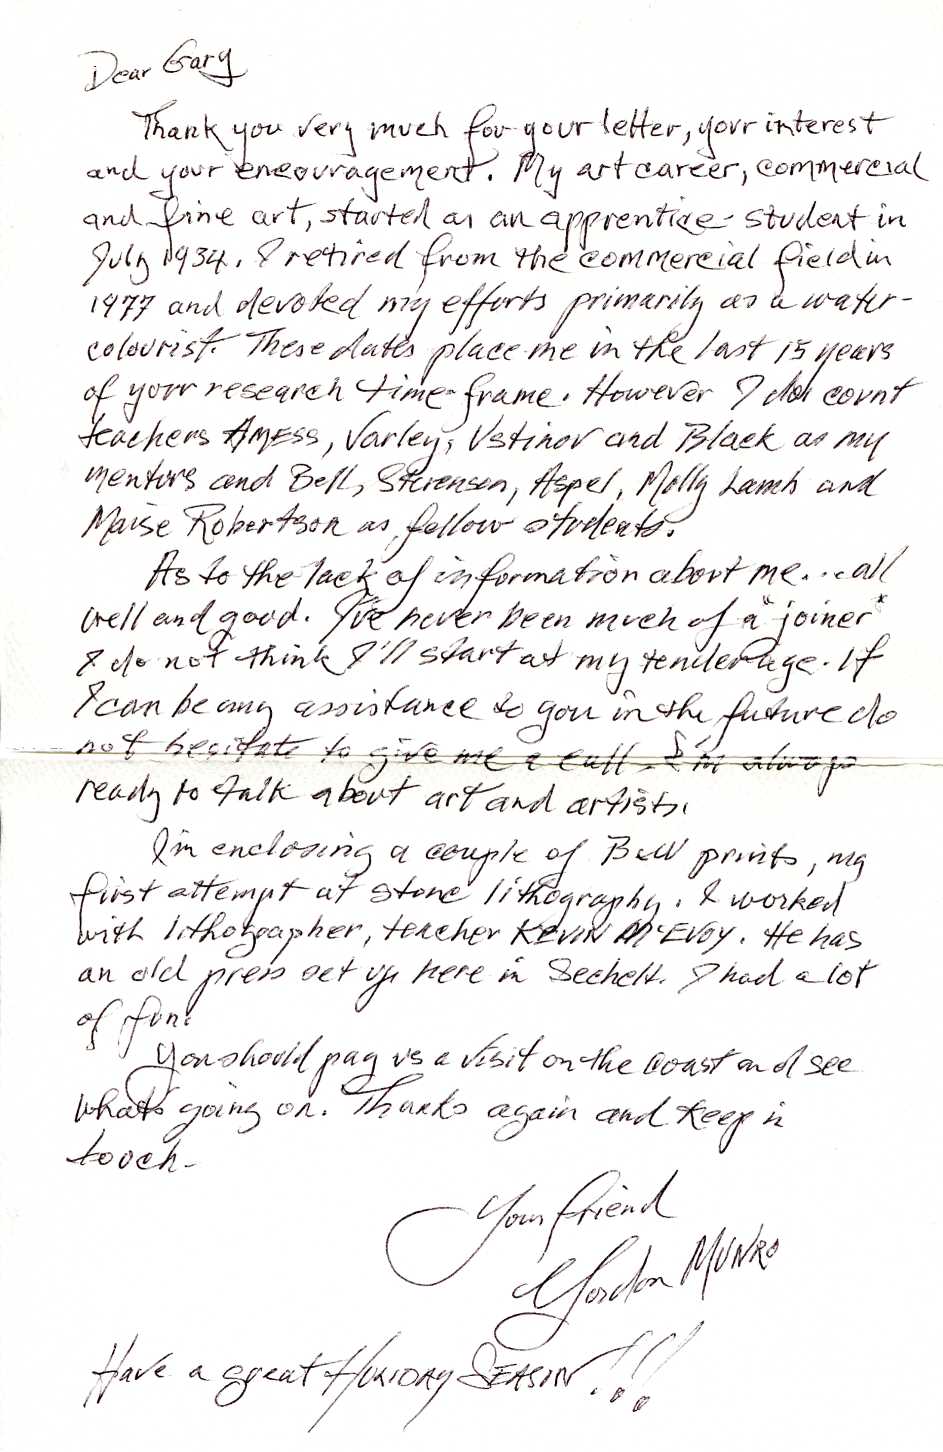 Dear Gary
Thank you very much for your letter, your interest
and your encouragement. My art career, commercial
and fine art, started as an apprentice-student in
July 1934. I retired from the commercial field in
1977 and devoted my efforts primarily as a water-
colourist. These dates place me in the last 15 years
of your research time-frame. However I do count
teachers AMESS, Varley, Ustinov and Black as my
mentors and Bell, Stevenson, Aspel, Molly Lamb and
Maise Robertson as fellow students.
As to the lack of information about me... all
well and good. I've never been much of a "joiner"
I do not think I'll start at my tender age. If
I can be any assistance to you in the future do
not hesitate to give me a call. I'm always
ready to talk about art and artists.
I'm enclosing a couple of B&W prints, my
first attempt at stone lithography. I worked
with lithographer, teacher KEVIN McEVOY. He has
an old press set up here in Sechelt. I had a lot
of fun.
You should pay us a visit on the coast and see
whats going on. Thanks again and keep in
touch-
Your friend
Gordon MUNRO
Have a great HOLIDAY SEASON!!!